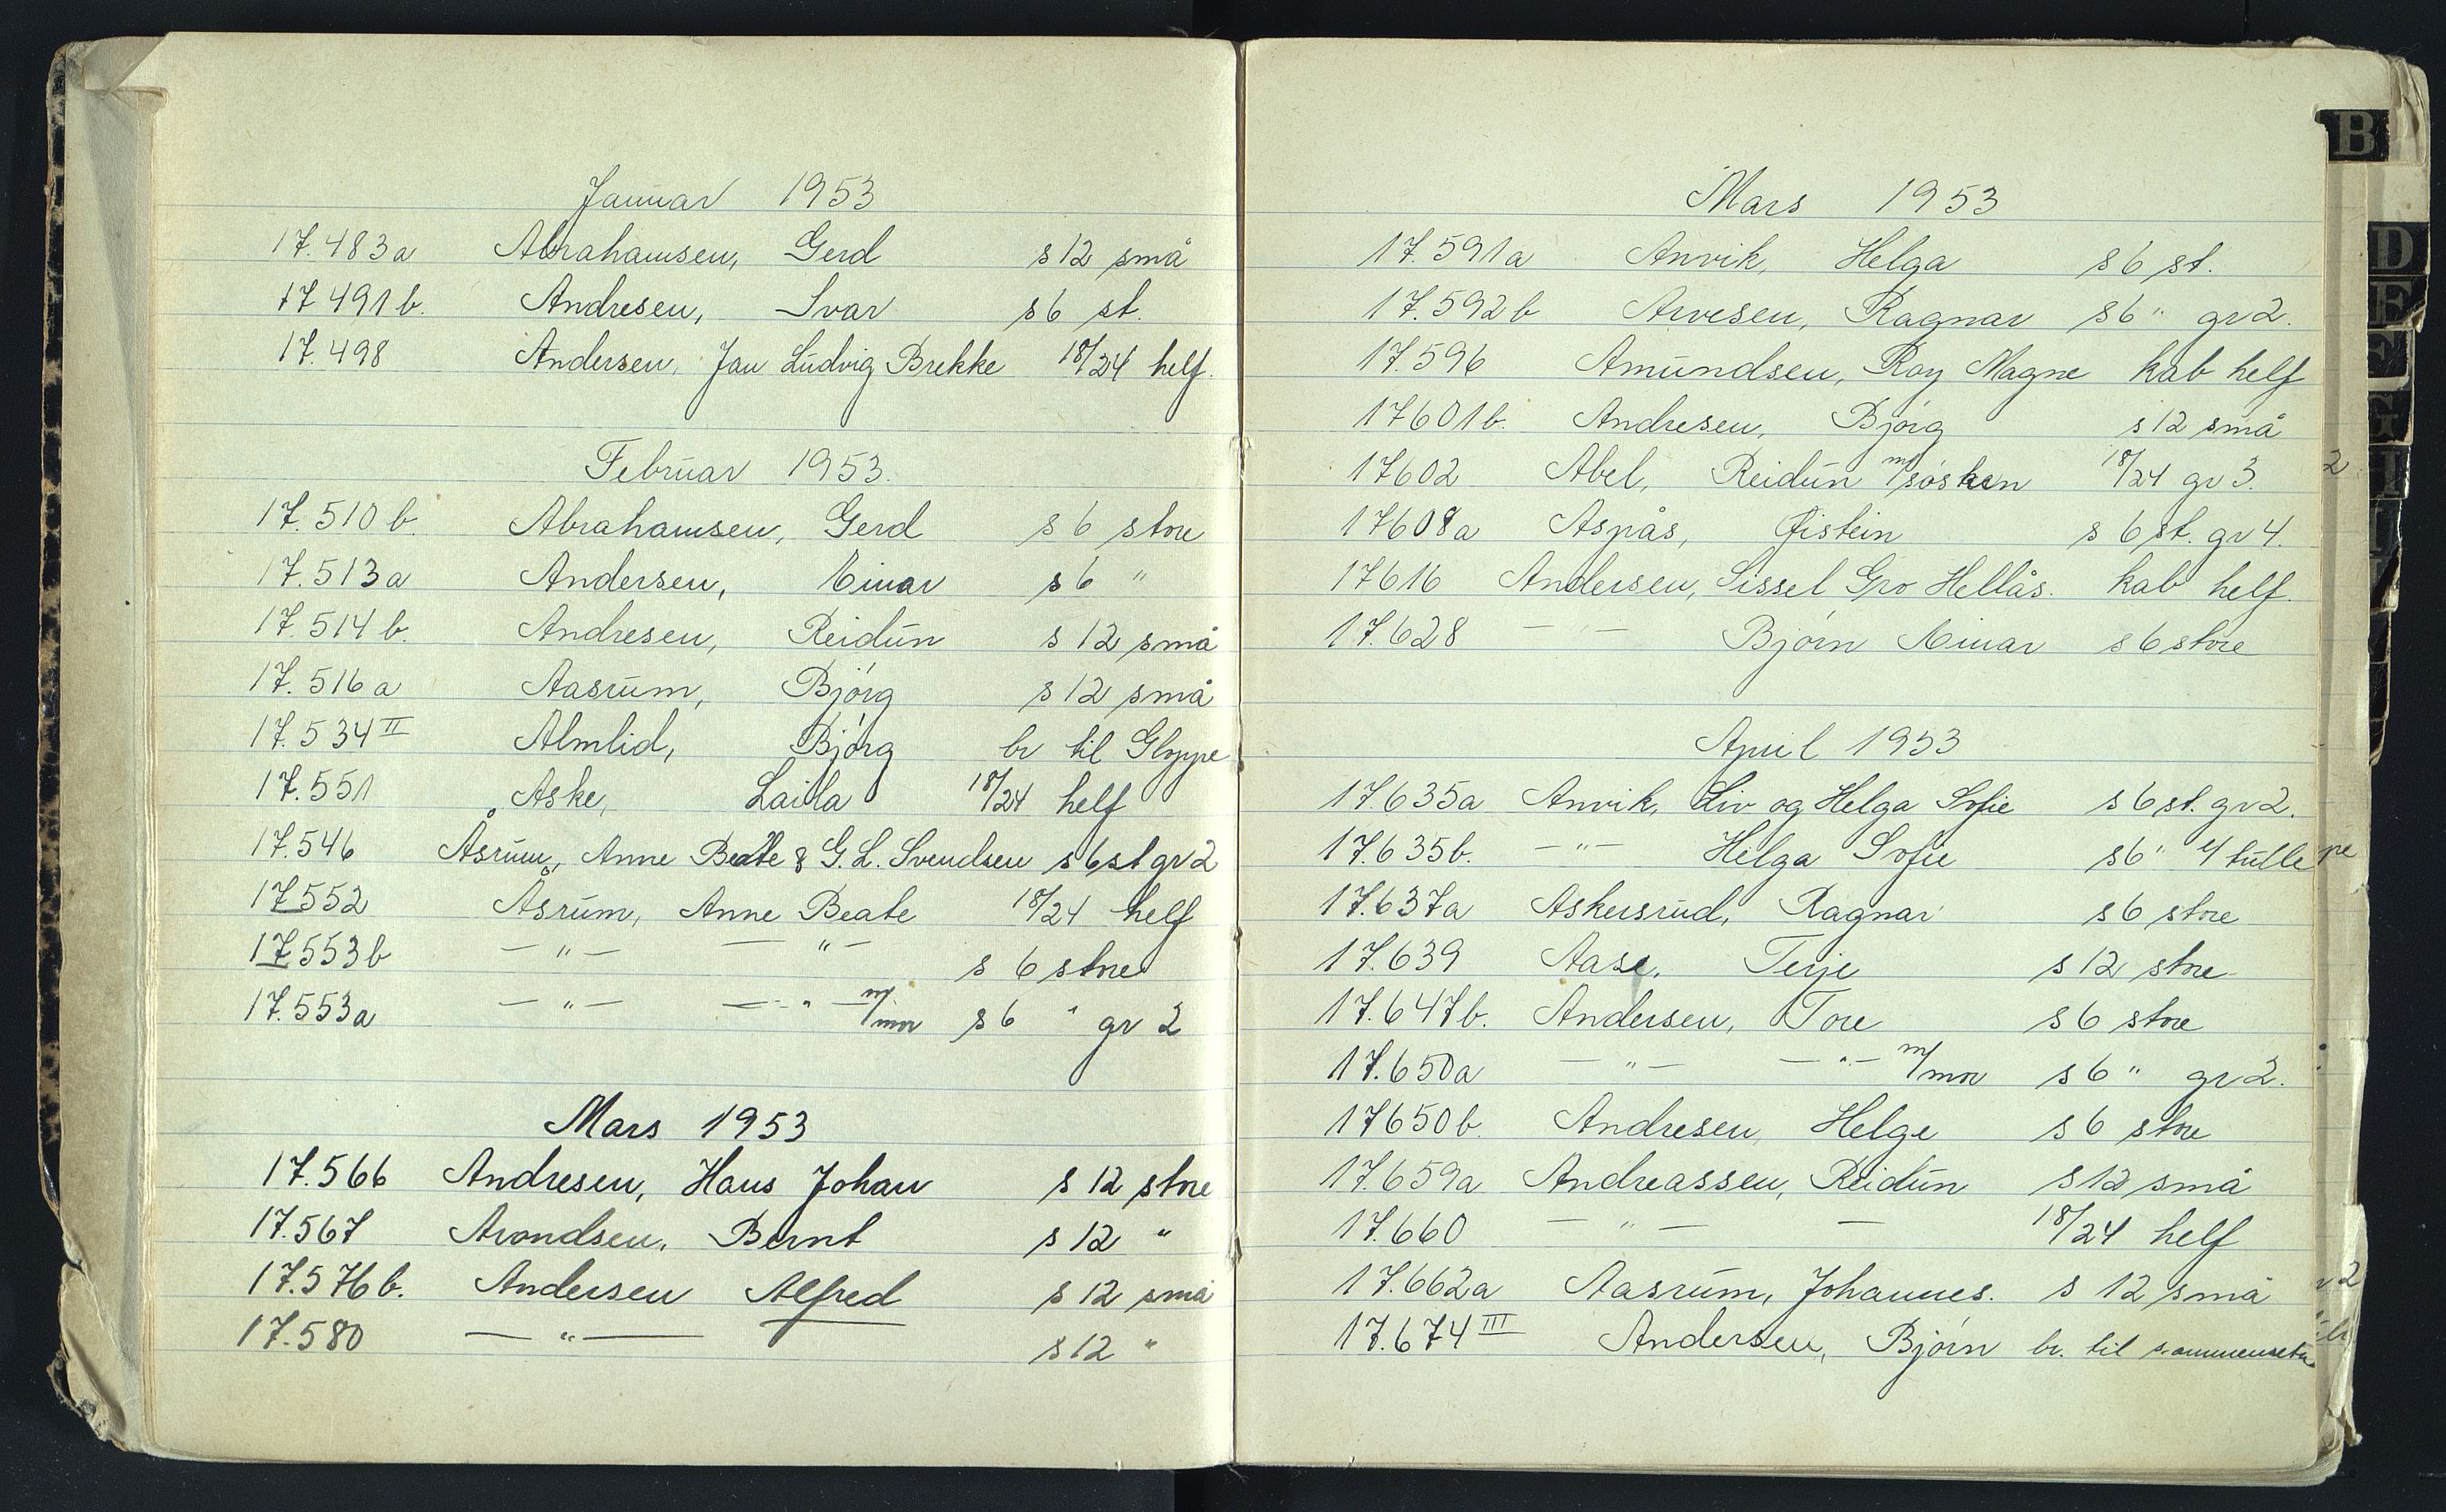 Januar 1953
17.483a Abrahamsen, Gerd s 12 små
17 491 b. Andresen, Ivar s 6 st.
17.498 Andersen, Jan Ludvig Brekke 18/24 helf.
Februar 1953.
17.510 b. Abrahamsen, Gerd s 6 store
17.513a Andersen, Einar s 6 "
17.514 b. Andresen, Reidun s 12 små
17.516 a Aasrum, Bjørg s 12 små
17.534 II Almlid, Bjørg br til Gloppe
17.551 Aske, Laila 18/24 helf
17.546 Åsrum, Anne Beate & G. L. Svendsen s 6 st gr 2
17552 Åsrum, Anne Beate 18/24 helf
17553b — " — — " — s 6 store
17.553a — " — — " — m/mor s 6 " gr 2
Mars 1953
17.566 Andresen, Hans Johan s 12 store
17.567 Arondsen, Bernt s 12 "
17.576 b. Andersen Alfred s 12 små
17.580 — " — s 12 "
Mars 1953
17.591a Anvik, Helga s 6 st.
17.592b Arvesen, Ragnar s 6 " gr 2.
17.596 Amundsen, Roy Magne kab helf
17601b. Andresen, Bjørg s 12 små
17602 Abel, Reidun m/søsken 18/24 gr 3.
17608a Aspås, Øistein s 6 st. gr 4.
17616 Andersen, Sissel Gro Hellås. kab helf.
17.628 — " — Bjørn Einar s 6 store
April 1953
17.635a Anvik, Liv og Helga Sofie s 6 st. gr 2.
17.635b. — " — Helga Sofie s 6 " 4 tulle
17.637a Askersrud, Ragnar s 6 store
17.639 Aase, Terje s 12 store
17.647b. Andersen, Tore s 6 store
17.650a — " — — " — m/mor s 6 " gr 2.
17650b. Andresen, Helge s 6 store
17.659a Andreassen, Reidun s 12 små
17.660 — " — — 18/24 helf
17.662a Aasrum, Johannes. s 12 små
17.674 III Andersen, Bjørn br. til sammensetn
B
D
E
G